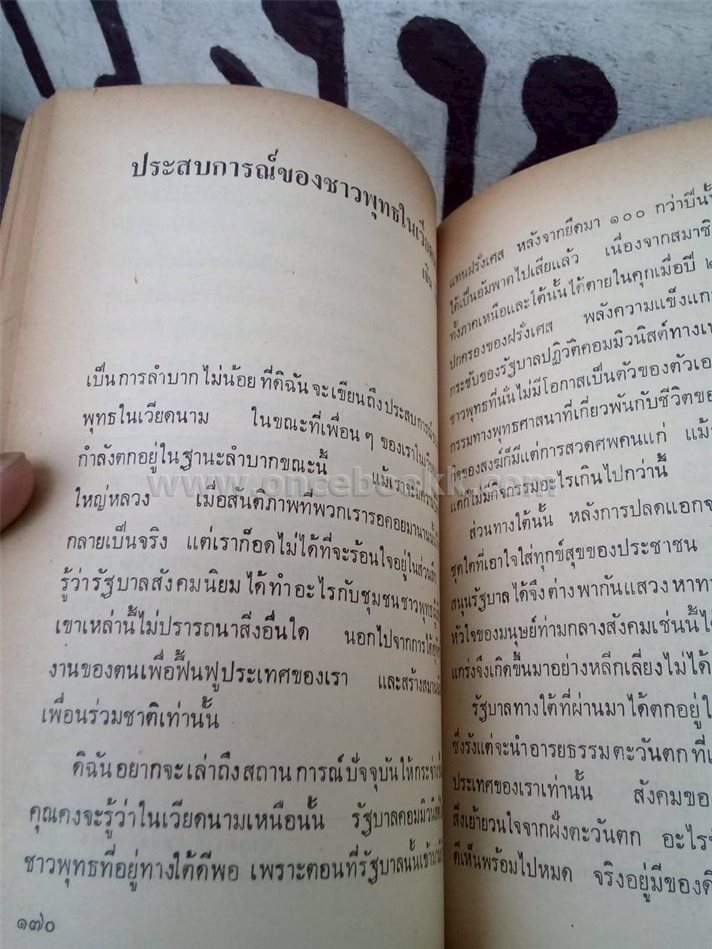 ประสบการณ์ของชาวพุทธในเวียด
เป็นการลำบากไม่น้อย ที่ดิฉันจะเขียนถึงประสบการณ์
พุทธในเวียดนาม ในขณะที่เพื่อน ๆ ของเราใน
กำลังตกอยู่ในฐานะลำบากขณะนี้ แม้เราจะมีความ
ใหญ่หลวง เมื่อสันติภาพที่พวกเรารอคอยมานาน
กลายเป็นจริง แต่เราก็อดไม่ได้ที่จะร้อนใจอยู่ในส่วนลึก
รู้ว่ารัฐบาลสังคมนิยมได้ทำอะไรกับชุมชนชาวพุทธ
เขาเหล่านี้ไม่ปรารถนาสิ่งอื่นใด นอกไปจากการได้
งานของตนเพื่อฟื้นฟูประเทศของเรา และสร้าง
เพื่อนร่วมชาติเท่านั้น
ดิฉันอยากจะเล่าถึงสถานการณ์ปัจจุบันให้กระจ่าง
คุณคงจะรู้ว่าในเวียดนามเหนือนั้น รัฐบาลคอมมิวนิสต์
ชาวพุทธที่อยู่ทางใต้ดีพอ เพราะตอนที่รัฐบาลนั้นเข้ามา
๑๗๐
แทนฝรั่งเศส หลังจากยึดมา ๑๐๐ กว่าปีนั้น
ได้เป็นอัมพาตไปเสียแล้ว เนื่องจากสมาชิ
ทั้งภาคเหนือและใต้นั้นได้ตายในคุกเมื่อปี ๒
ปกครองของฝรั่งเศส พลังความแข็งแก
กระชับของรัฐบาลปฏิวัติคอมมิวนิสต์ทางเห
ชาวพุทธที่นั่นไม่มีโอกาสเป็นตัวของตัวเอ
กรรมทางพุทธศาสนาที่เกี่ยวพันกับชีวิตขอ
ของสงฆ์ก็มีแต่การสวดศพคนแก่ แม้
แต่ก็ไม่มีกิจกรรมอะไรเกินไปกว่านี้
ส่วนทางใต้นั้น หลังการปลดแอก
ชุดใดที่เอาใจใส่ทุกข์สุขของประชาชน
สนุนรัฐบาลได้จึงต่างพากันแสวงหาทา
หัวใจของมนุษย์ท่ามกลางสังคมเช่นนี้ได้
แกร่งจึงเกิดขึ้นมาอย่างหลีกเลี่ยงไม่ได้
รัฐบาลทางใต้ที่ผ่านมาได้ตกอยู่ใ
ซึ่งรังแต่จะนำอารยธรรมตะวันตกที่เ
ประเทศของเราเท่านั้น สังคมขอ
สิ่งเย้ายวนใจจากฝั่งตะวันตก อะไร
ดีเห็นพร้อมไปหมด จริงอยู่มีของดี
www.oncebookk.com